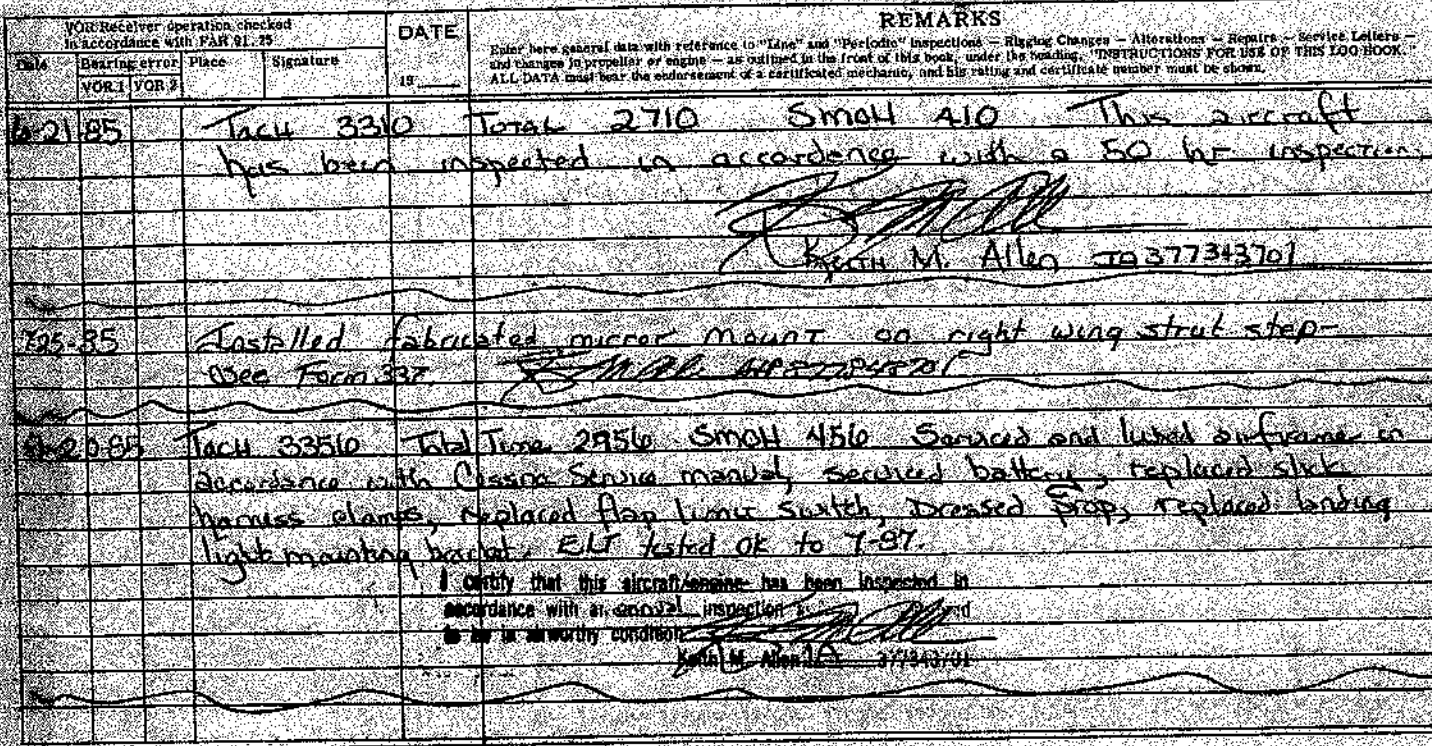 VOR Receiver operation checked
in accordance with FAR 91.25
Date Bearing error Place Signature
VOR 1 VOR 2
DATE
19
REMARKS
Enter here general data with reference to "Line" and "Periodic" Inspections — Rigging Changes — Alterations — Repairs — Service Letters —
and changes in propeller or engine — as outlined in the front of this book, under the heading, "INSTRUCTIONS FOR USE OF THIS LOG BOOK."
ALL DATA must bear the endorsement of a certificated mechanic, and his rating and certificate number must be shown.
6-21-85 Tach 3310 Total 2710 SMOH 410 This aircraft
has been inspected in accordence with a 50 hr inspection
Keith M. Allen IA377343701
7-25-85 Installed fabricated mirror mount on right wing strut step-
See Form 337
20-85 Tach 3356 Total Time 2956 SMOH 456 Serviced and lubed airframe in
accordance with Cessna Service manual, serviced battery, replaced slick
harniss clamps, replaced flap limit switch, Dressed prop, replaced landing
light mounting bracket. ELT tested OK to 7-87.
I certify that this aircraft/engine has been inspected in
accordance with an annual inspection
to be in airworthy condition
Keith M. Allen IA 377343701